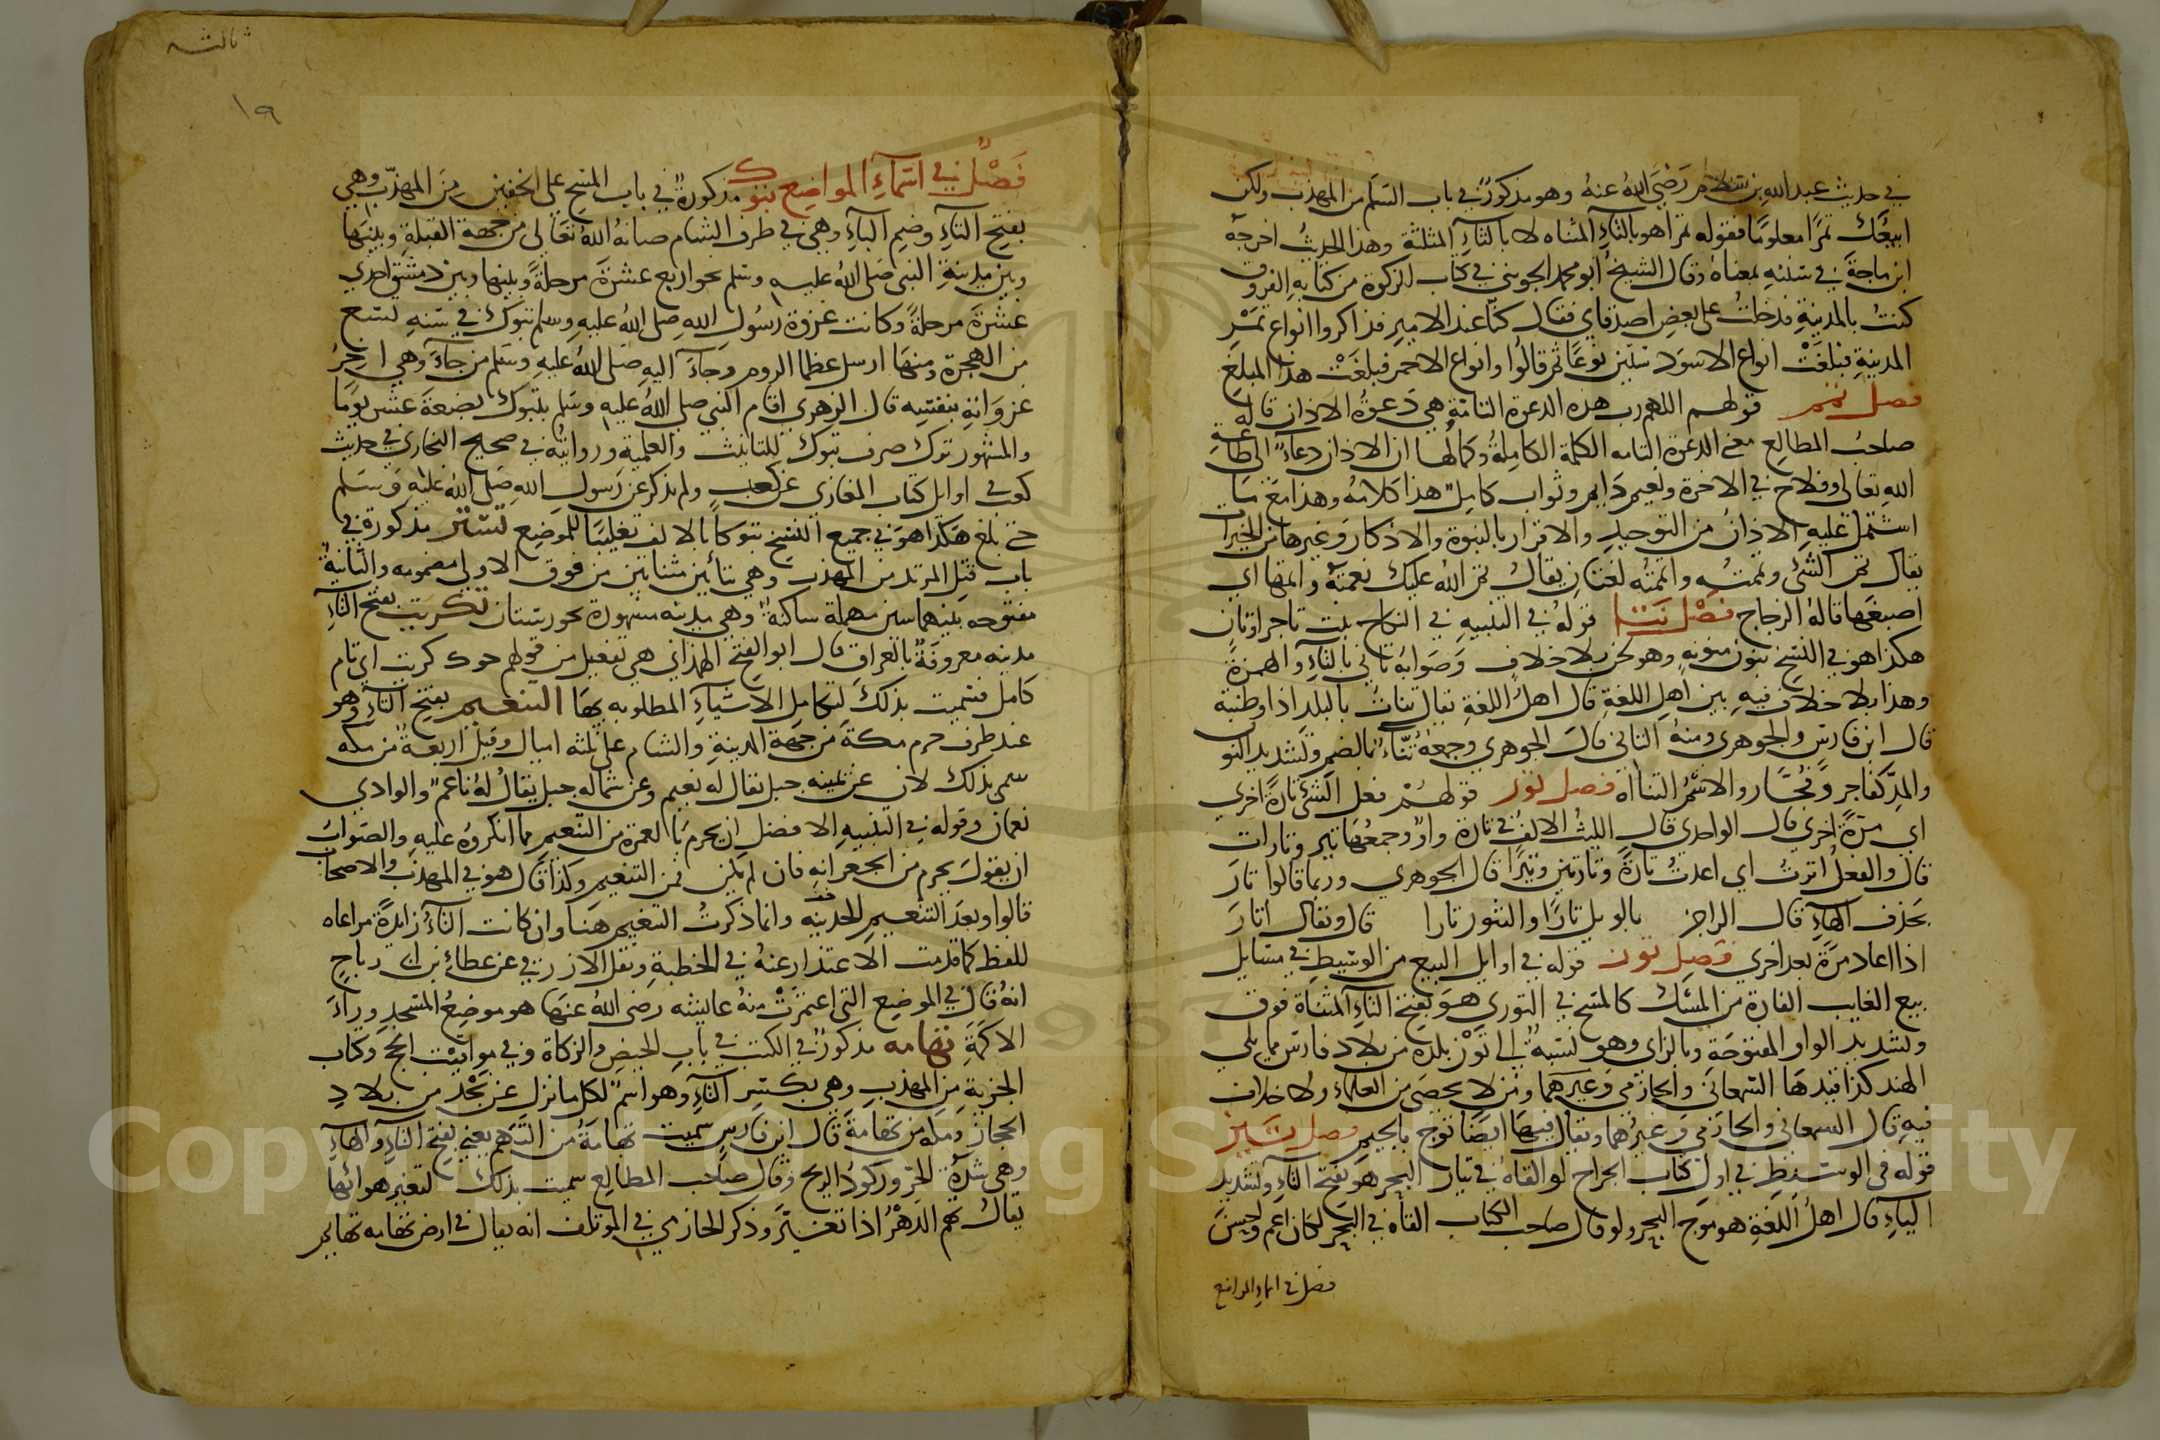 في حديث عبد الله بن سلام رضي الله عنه وهو مذكور في باب السلم من المهذب ولكن
ابيعك تمرا معلوما فقوله تمرا هو بالتاء المثناه لا بالثاء المثلثة وهذا الحديث اخرجه
ابن ماجة في سننه بمعناه وقال الشيخ ابو محمد الجويني في كتاب الزكوة من كتابه الفروق
كنت بالمدينة فدخلت على بعض اصدقاي فقال كنا عند الامير فذاكروا انواع تمر
المدينة فبلغت انواع الاسود ستين نوعا ثم قالوا وانواع الاحمر فبلغت هذا المبلغ
فصل تمم قولهم اللهم رب هذه الدعوة التامة هي دعوة الاذان قاله
صاحب المطالع معنى الدعوة التامه الكلمة الكاملة وكمالها ان الاذان دعاء الى طاعة
الله تعالى وفلاح في الاخرة ونعيم دايم وثواب كامل هذا كلامه وهذا مع ما
اشتمل عليه الاذان من التوحيد والاقرار بالنبوة والاذكار وغيرها من الخيرات
يقال تم الشئ وتممته واتممته لغتان يقال تمم الله عليك نعمته واتمها اي
اسبغها قاله الزجاج فصل تنا قوله في التنبيه في النكاح بنت تاجر او تان
هكذا هو في النسخ بنون منونه وهو لحن بلا خلاف وصوابه تاني بالتاء والهمزة
وهذا بلا خلاف فيه بين اهل اللغة قال اهل اللغة يقال تنات بالبلد اذا وطنته
قال ابن فارس والجوهري ومنه التاني قال الجوهري وجمعه تناء بالضم وتشديد النو
والمد كفاجر وفجار والاسم التنااه فصل تور قولهم فعل الشئ تارة اخرى
اي مرة اخري قال الواحدي قال الليث الالف في تارة واو وجمعها تير وتارات
قال والفعل اترت اي اعدت تارة وتارتين وتيرا قال الجوهري وربما قالوا تار
بحذف الهاء قال الراجز بالويل تارا والثبور تارا قال ويقال اتار
اذا اعاد مرة بعد اخري فصل توز قوله في اوايل البيع من الوسيط في مسايل
بيع الغايب الفارة من المسك كالمسخ في التوزي هو بفتح التاء المثناة فوق
وتشديد الواو المفتوحة وبالزاي وهو نسبة الى توز بلدة من بلاد فارس مما يلي
الهند كذا قيدها السمعاني والحازمي وغيرهما ومن لا يحصى من العلماء ولا خلاف
فيه قال السمعاني والحازمي وغيرهما ويقال فيها ايضا توج بالجيم فصل تير
قوله في الوسيط في اول كتاب الجراح لو القاه في تيار البحر هو بفتح التاء وتشديد
الياء قال اهل اللغة هو موج البحر ولو قال صاحب الكتاب القاه في البحر لكان اعم واحسن
فصل في اسماء المواضع
ثالثه
١٩
فصل في اسماء المواضع تبوك مذكورة في باب المسح على الخفين من المهذب وهي
بفتح التاء وضم الباء وهي في طرف الشام صانه الله تعالى من جهة القبلة وبينها
وبين مدينة النبي صلى الله عليه وسلم نحو اربع عشرة مرحلة وبينها وبين دمشق احدي
عشرة مرحلة وكانت غزوة رسول الله صلى الله عليه وسلم تبوك في سنه تسع
من الهجرة ومنها ارسل عظما الروم وجاء اليه صلى الله عليه وسلم من جاء وهي اخر
غزواته بنفسه قال الزهري اقام النبي صلى الله عليه وسلم بتبوك بضعة عشر يوما
والمشهور ترك صرف تبوك للتانيث والعلمية وروايته في صحيح البخاري في حديث
كعب في اوايل كتاب المغازي عن كعب ولم يذكر عن رسول الله صلى الله عليه وسلم
حتى بلغ هكذا هو في جميع النسخ تبوكا بالالف تغليبا للموضع تستر مذكورة في
باب قتل المرتد من المهذب وهي بتائين مثناتين من فوق الاولى مضمومه والثانية
مفتوحه بينهما سين مهملة ساكنة وهي مدينه مشهورة بخورستان تكريت بفتح التاء
مدينه معروفة بالعراق قال ابو الفتح الهمذاني هي تفعيل من قولهم حول كريت اي تام
كامل فسميت بذلك لتكامل الاشياء المطلوبه بها التنعيم بفتح التاء وهو
عند طرف حرم مكة من جهة المدينة والشام على ثلثه اميال وقيل اربعة من مكه
سمي بذلك لان عن يمينه جبل يقال له نعيم وعن شماله جبل يقال له ناعم والوادي
نعمان وقوله في التنبيه الافضل ان يحرم بالعمرة من التنعيم مما انكروه عليه والصواب
ان يقول يحرم من الجعرانه فان لم يكن فمن التنعيم وكذا قال هو في المهذب والاصحاب
قالوا وبعد التنعيم الحديبيه وانما ذكرت التنعيم هنا وان كانت التاء زايدة مراعاه
للفظ كما قدمت الاعتذار عنه في الخطبة ونقل الازرقي عن عطاء بن ابي رباح
انه قال في الموضع التى اعتمرت منه عايشه رضى الله عنها هو موضع المسجد وراء
الاكمة تهامه مذكور في الكتب في باب الحيض والزكاة وفي مواقيت الحج وكتاب
الجزية من المهذب وهي بكسر التاء وهو اسم لكل ما نزل عن نجد من بلاد
الحجاز ومكه من تهامة قال ابن فارس سميت تهامة من التهم يعني بفتح التاء والهاء
وهي شدة الحر وركود الريح وقال صاحب المطالع سميت بذلك لتغير هوائها
يقال تهم الدهر اذا تغير وذكر الحازمي في المؤتلف انه يقال في ارض تهامه تهايم
Copyright © King Saud University
1957